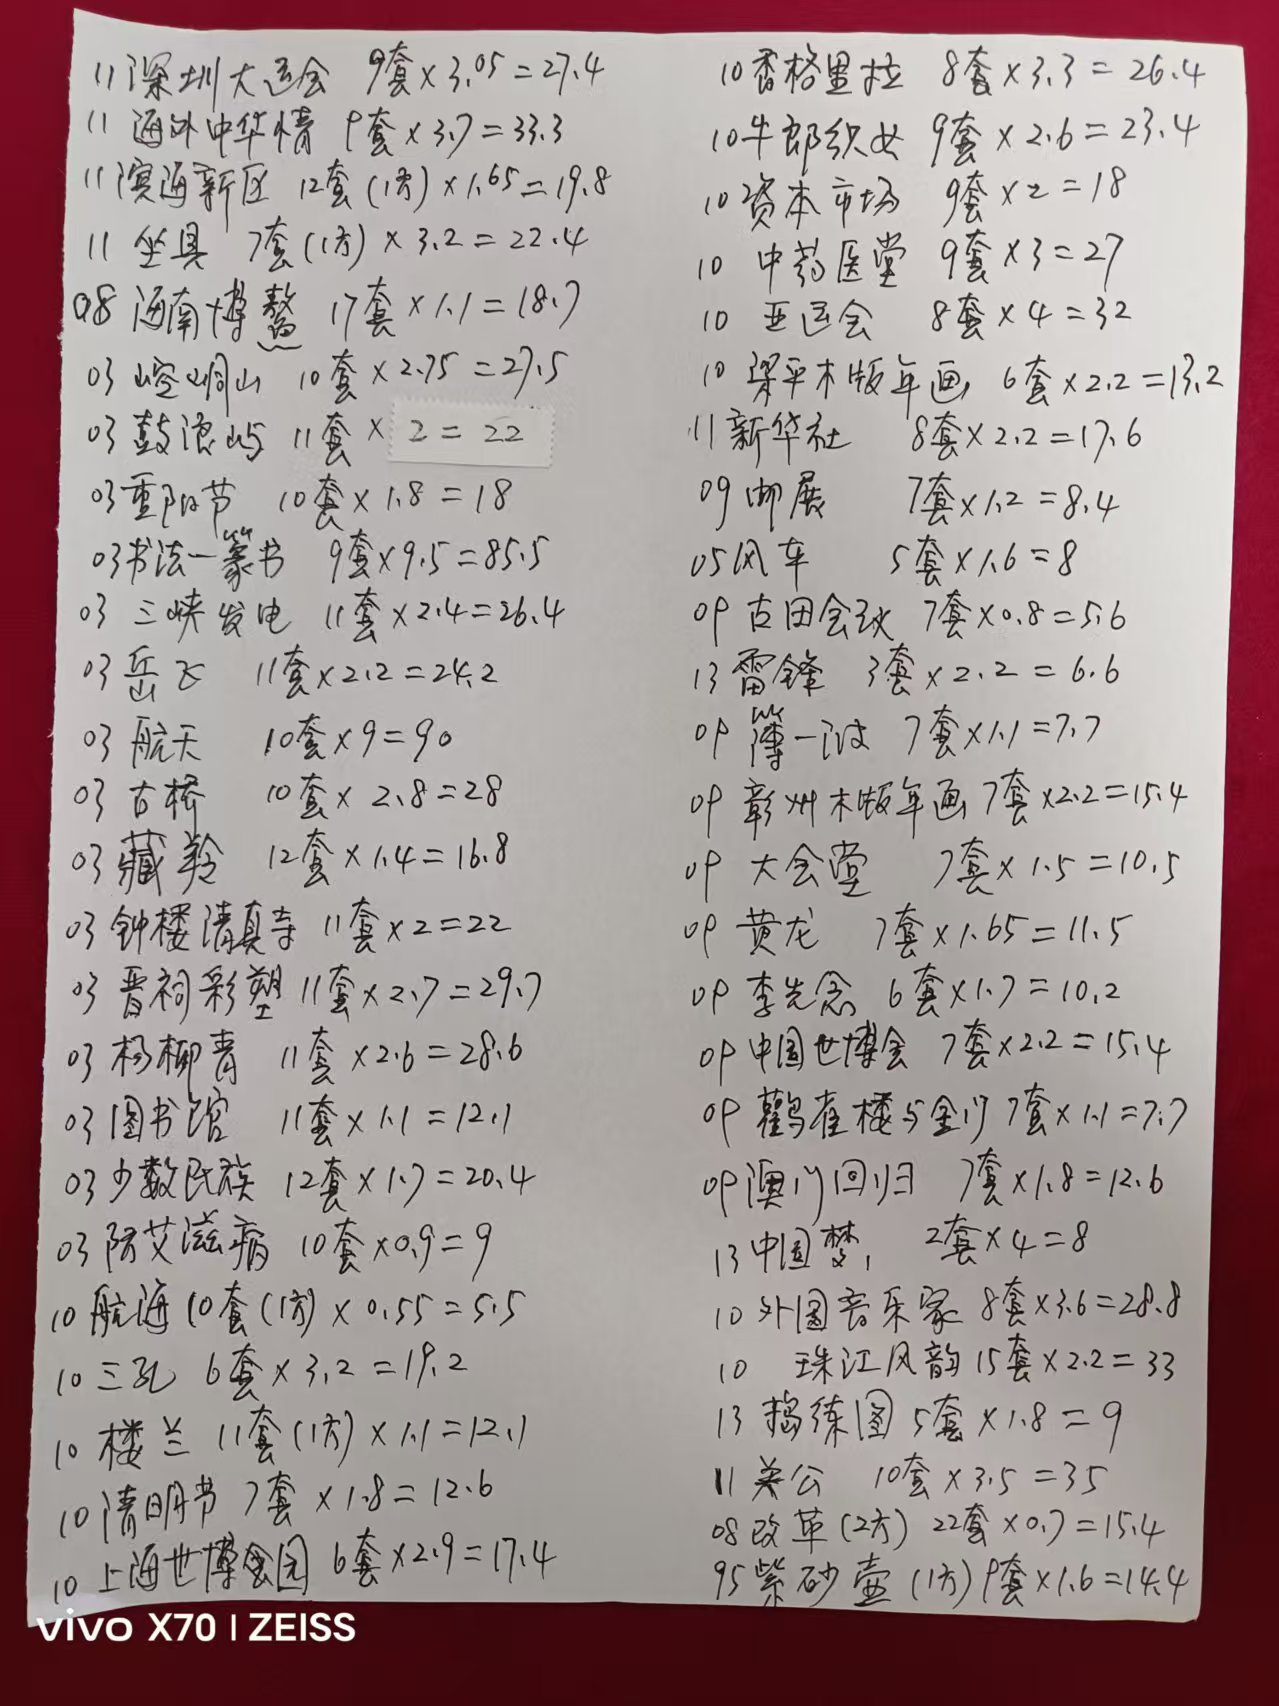 11 深圳大运会 9套×3.05=27.4
11 海外中华情 9套×3.7=33.3
11 滨海新区 12套(1方)×1.65=19.8
11 坐具 7套(1方)×3.2=22.4
08 海南博鳌 17套×1.1=18.7
03 崆峒山 10套×2.75=27.5
03 鼓浪屿 11套×2=22
03 重阳节 10套×1.8=18
03 书法一篆书 9套×9.5=85.5
03 三峡发电 11套×2.4=26.4
03 岳飞 11套×2.2=24.2
03 航天 10套×9=90
03 古桥 10套×2.8=28
03 藏羚 12套×1.4=16.8
03 钟楼清真寺 11套×2=22
03 晋祠彩塑 11套×2.7=29.7
03 杨柳青 11套×2.6=28.6
03 图书馆 11套×1.1=12.1
03 少数民族 12套×1.7=20.4
03 防艾滋病 10套×0.9=9
10 航海 10套(1方)×0.55=5.5
10 三孔 6套×3.2=19.2
10 楼兰 11套(1方)×1.1=12.1
10 清明节 7套×1.8=12.6
10 上海世博会园 6套×2.9=17.4
10 香格里拉 8套×3.3=26.4
10 牛郎织女 9套×2.6=23.4
10 资本市场 9套×2=18
10 中药医堂 9套×3=27
10 亚运会 8套×4=32
10 梁平木版年画 6套×2.2=13.2
11 新华社 8套×2.2=17.6
09 邮展 7套×1.2=8.4
05 风车 5套×1.6=8
09 古田会议 7套×0.8=5.6
13 雷锋 3套×2.2=6.6
09 簿一波 7套×1.1=7.7
09 彰州木版年画 7套×2.2=15.4
09 大会堂 7套×1.5=10.5
09 黄龙 7套×1.65=11.5
09 李先念 6套×1.7=10.2
09 中国世博会 7套×2.2=15.4
09 鹳雀楼与金门 7套×1.1=7.7
09 澳门回归 7套×1.8=12.6
13 中国梦1 2套×4=8
10 外国音乐家 8套×3.6=28.8
10 珠江风韵 15套×2.2=33
13 捣练图 5套×1.8=9
11 关公 10套×3.5=35
08 改革(2方) 22套×0.7=15.4
95 紫砂壶(1方) 9套×1.6=14.4
vivo X70 | ZEISS